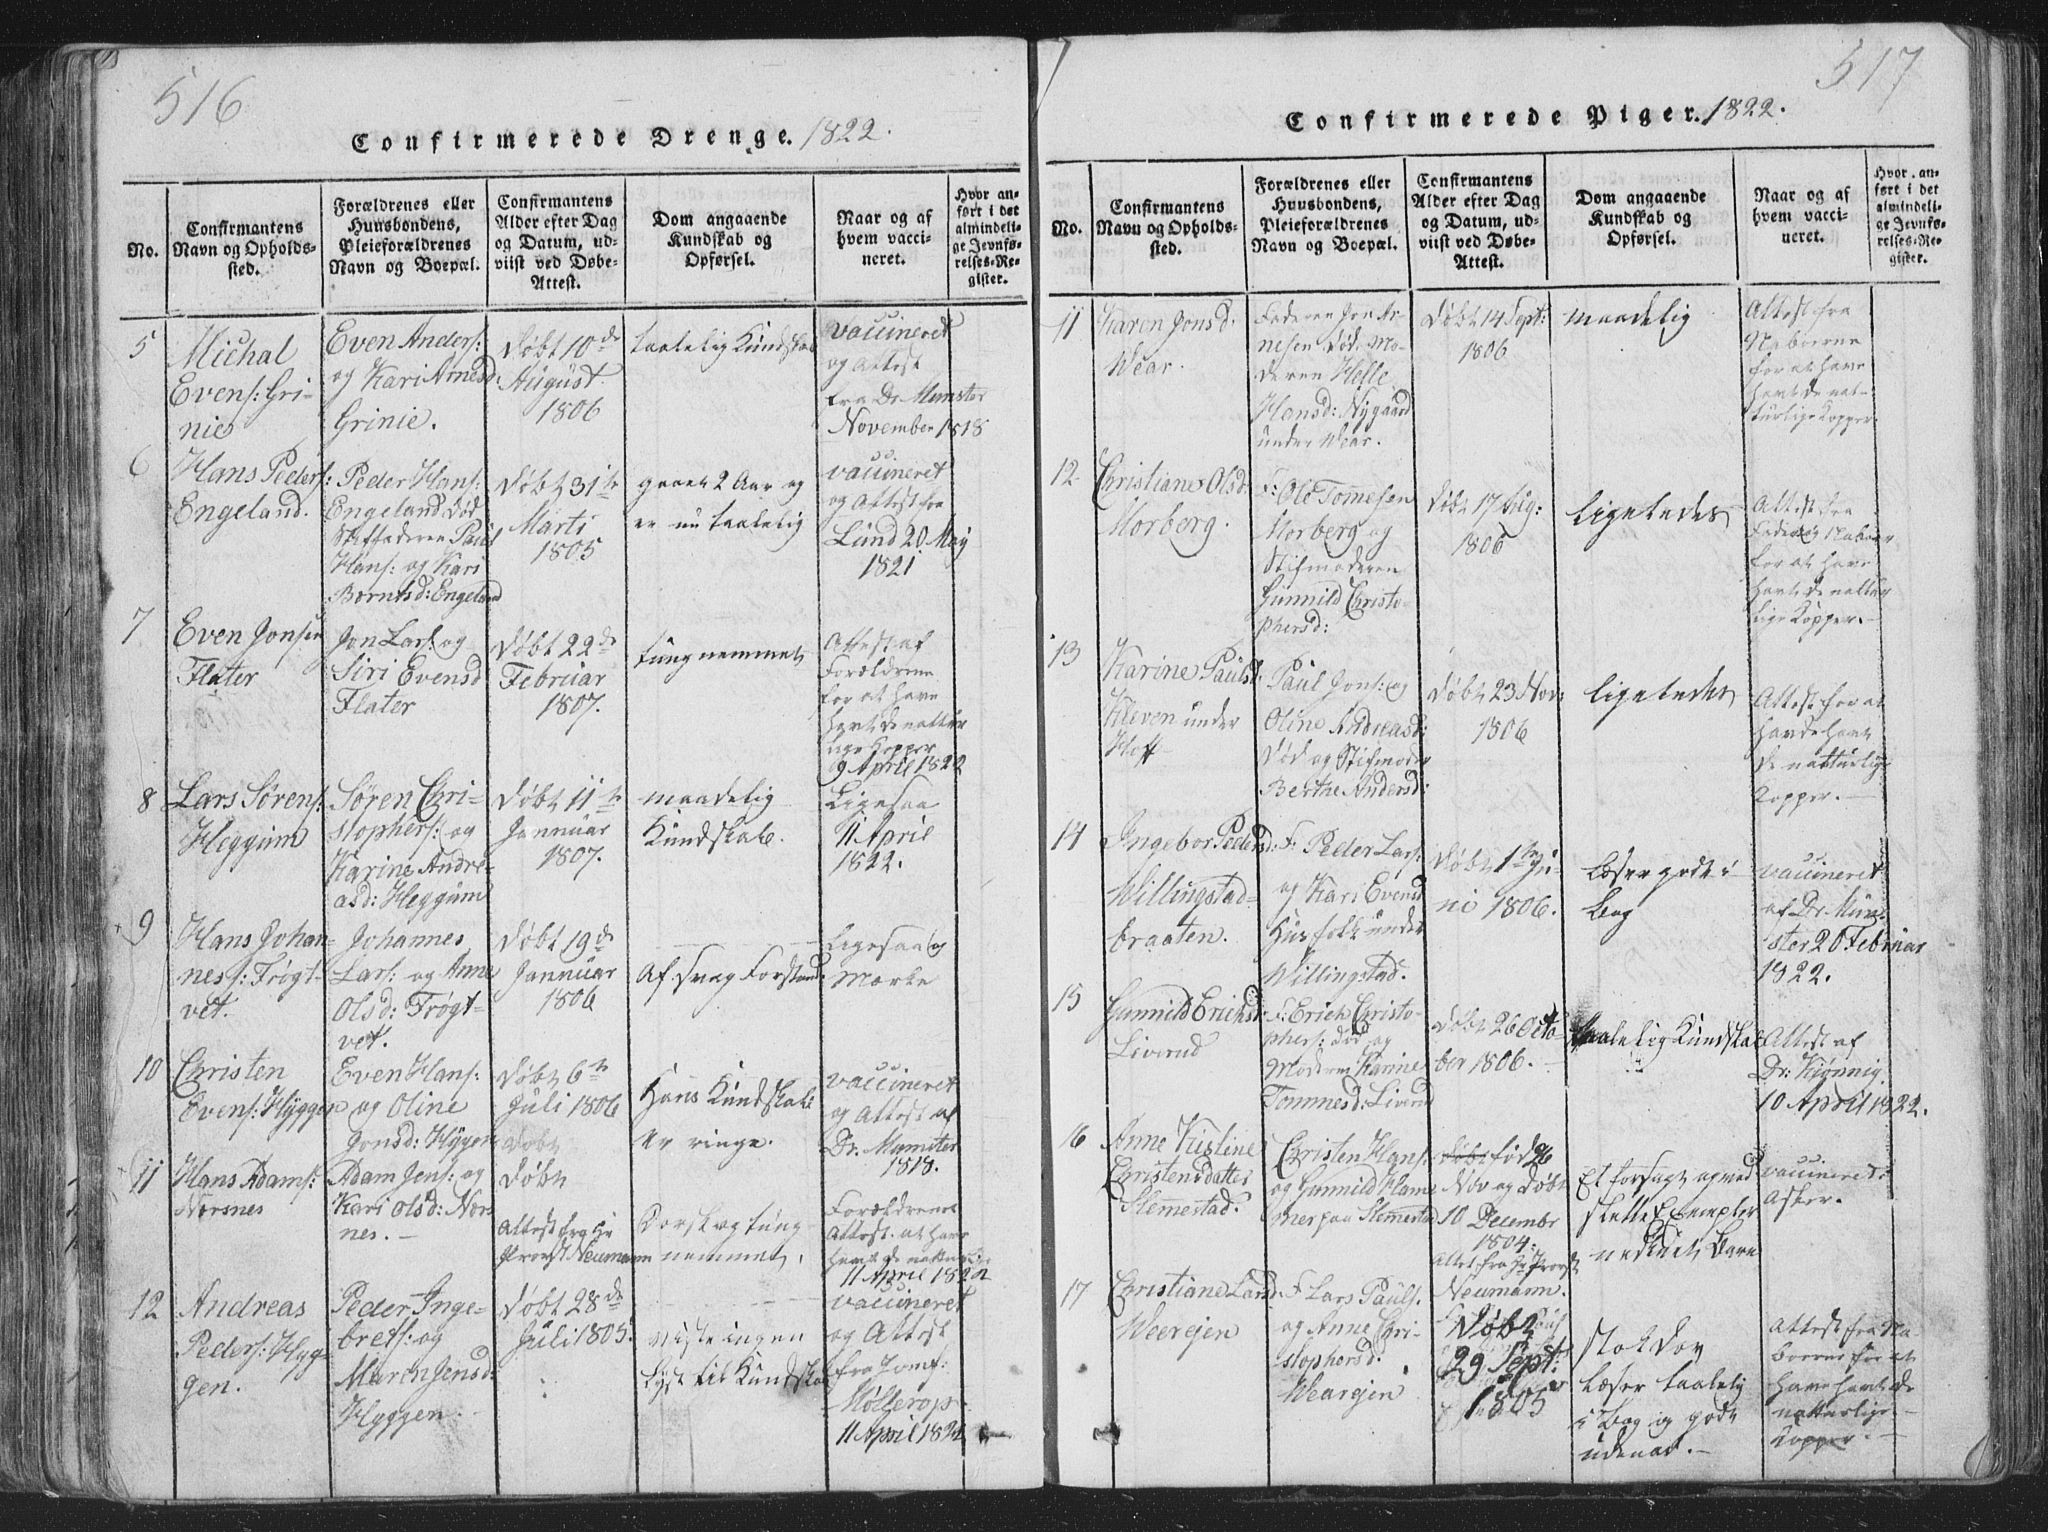 516
Confirmerede Drenge. 1822.
No.
Confirmantens
Navn og Opholds-
sted.
Forældrenes eller
Huusbondens,
Pleieforældrenes
Navn og Boepæl.
Confirmantens
Alder efter Dag
og Datum, ud-
viist ved Døbe-
Attest.
Dom angaaende
Kundskab og
Opførsel.
Naar og af
hvem vacci-
neret.
Hvor an-
ført i det
almindeli-
ge Jevnfø-
relses-Re-
gister.
5
Michal
Evens: Gri-
nie
Even Anders:
og Kari Arnesd:
Grinie.
Døbt 10de
August
1806
taalelig Kundskab
vaccineret
og Attest
fra Dr Munster
November 1818
6
Hans Peders:
Engeland.
Peder Hans:
Engeland død
Stiffaderen Paul
Hans: og Kari
Borntsd: Engeland
Døbt 31te
Marti
1805
gaaet 2 Aar og
er nu taalelig
vaccineret
og Attest fra
Lund 20 May
1821
7
Even Jonsen
Flater
Jon Lars: og
Siri Evensd
Flater
Døbt 22de
Februar
1807.
tungnemmet
Attest af
Forældrene
for at have
havt de nattur
lige Kopper
9 April 1822
8
Lars Sørens:
Heggum
Søren Chri-
stophers: og
Karine Andre-
asd: Heggum
Døbt 11te
Januar
1807.
maadelig
Kundskab.
Ligesaa
11 April
1822.
9
Hans Johan-
nes: Trøgt-
vet.
Johannes
Lars: og Anne
Olsd: Trøgt-
vet.
Døbt 19de
Januar
1806
Af svag Forstand
Ligesaa og
Mærke
10
Christen
Evens: Hyggen
Even Hans:
og Oline
Jonsd: Hygen
Døbt 6te
Juli 1806
Hans Kundskab
er ringe.
vaccineret
og Attest af
Dr. Munster
1818.
11
Hans Adams:
Nærsnes
Adam Jens: og
Kari Olsd: Nærs
nes.
Døbt
Døbt
Attest fra Hr
Provst Neumann
Dorsk og tung-
nemmet.
Forældrenes
Attest at have
havt de natturlige
11 April 1822
12
Andreas
Peders: Hyg-
gen.
Peder Inge-
brets: og
Maren Jensd:
Hyggen
Døbt 28de
Juli 1805.
viste ingen
Lyst til Kundskab
vaccineret
og Attest
fra Jomf:
Møllerop
11 April 1822
517
Confirmerede Piger. 1822.
No.
Confirmantens
Navn og Opholds-
sted.
Forældrenes eller
Huusbondens,
Pleieforældrenes
Navn og Boepæl.
Confirmantens
Alder efter Dag
og Datum, ud-
viist ved Døbe-
Attest.
Dom angaaende
Kundskab og
Opførsel.
Naar og af
hvem vacci-
neret.
Hvor an-
ført i det
almindeli-
ge Jevnfø-
relses-Re-
gister.
11
Karen Jonsd.
Wear.
Faderen Jon Ar-
nesen død Mo-
deren Helle
Hansd: Nygaard
under Wear.
Døbt 14 Sept:
1806
maadelig
Attest fra
Naboerne
for at have
havt de nat-
turlige Kopper.
12
Christiane Olsd:
Morberg.
F: Ole Tommesen
Morberg og
Stifmoderen
Gunnild Christo-
phersd:
Døbt 17 Aug:
1806
ligeledes
Attest fra
Fader og Naboer
for at have
havt de nattur
lige Kopper.
13
Karine Paulsd:
Kleven under
Hoff
Paul Jons: og
Oline Andreasd:
død og Stifmoder
Berthe Andersd:
Døbt 23 Nov:
1806
ligeledes
Attest for at
havde havt
de natturlige
Kopper.
14
Ingebor Pedersd:
Willingstad-
braaten.
F: Peder Lars:
og Kari Evensd
Husfolk under
Willingstad.
Døbt 1ste Ju-
ni 1806.
Læser godt i
Bog
vaccineret
af Dr. Mun-
ster 20 Februar
1822.
15
Gunnild Erichsd:
Liverud
F: Erich Christo-
phers: død og
Moderen Karine
Tommesd: Liverud
Døbt 26 Octo-
ber 1806.
taalelig Kundskab
Attest af
Dr: Kiønnig
10 April 1822.
16
Anne Kistine
Christensdatter
Slemestad.
Christen Hans:
og Gunnild Hame
mer paa Slemestad
Døbt fød 26
Nov og døbt
10 Decembr
1804:
Attest fra Hr Provst
Neumann.
Et forsagt og med
slette Exempler
Barn
vaccineret
Asker.
17
Christiane Larsd:
Weerejen
F Lars Pauls.
og Anne Chri-
stophersd.
Wearejen
Døbt
29 Sept:
1805
Læser taalelig
i Bog og godt
udenad.
Attest fra Na-
boerne for at
have havt de
natturlige
Kopper.